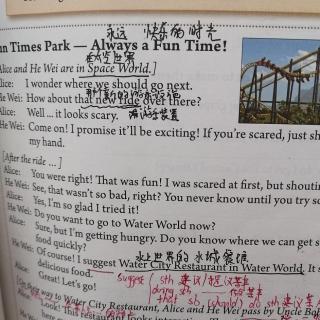 永远 快乐的时光
un Times Park — Always a Fun Time!
太空世界
Alice and He Wei are in Space World.]
Alice: I wonder where we should go next.
He Wei: How about that new ride over there?
Alice: Well ... it looks scary. 游乐装置
He Wei: Come on! I promise it'll be exciting! If you're scared, just sh
my hand.
[After the ride ...]
Alice: You were right! That was fun! I was scared at first, but shouti
He Wei: See, that wasn't so bad, right? You never know until you try so
Alice: Yes, I'm so glad I tried it!
He Wei: Do you want to go to Water World now?
Alice: Sure, but I'm getting hungry. Do you know where we can get s
food quickly?
水上世界的水城餐馆
He Wei: Of course! I suggest Water City Restaurant in Water World. It s
delicious food.
suggest sth 建议某事
Alice: Great! Let's go!
doing sth
that sb (should) do sth
On their way to Water City Restaurant, Alice and He Wei pass by Uncle Bob